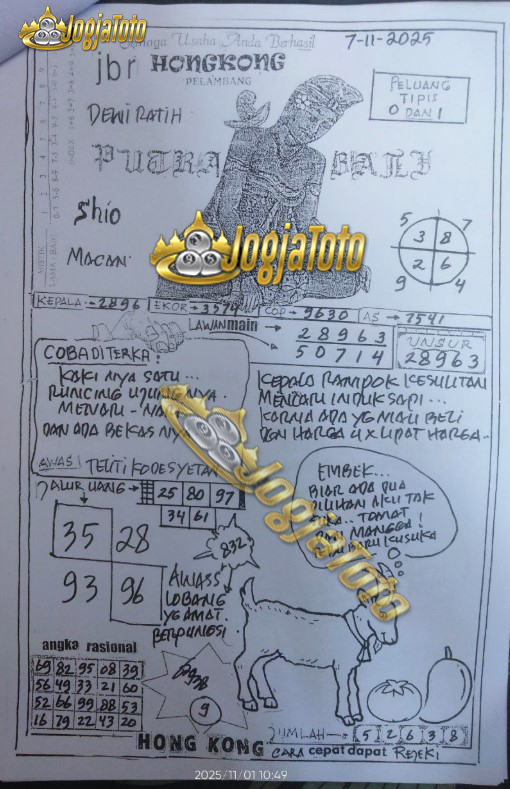 JogjaToto
Semoga Usaha Anda Berhasil
7-11-2025
jbr HONGKONG
PELAMBANG
PELUANG
TIPIS
0 DAN 1
DEWI RATIH
PUTRA BALI
Shio
MACAN
5 7
3 8
2 6
9 4
JogjaToto
KEPALA → 2896 EKOR → 3574 COP → 9630 AS → 7541
LAWAN main → 28963
50714
UNSUR
28963
COBA DI TERKA :
KAKI NYA SATU ...
RUNCING UJUNG NYA .
MENARI - NARI
DAN ADA BEKAS NYA
KEPALO RAMPOK KESULITAN
MENCARI INDUK SAPI ...
KARNA ADA YG MAU BELI
DGN HARGA 4 X LIPAT HARGA -
AWAS! TELITI KODE SYETAN
JALUR UANG → 25 80 97
34 61
35 28
93 96
832
EMBEK ...
BIAR ADA DUA
PILIHAN AKU TAK
SUKA .. TOMAT
MANGGA !
KUSUKA
JogjaToto
AWASS
LOBANG
YG AMAT
BERFUNGSI .
angka rasional
69 82 95 08 39
56 49 33 21 60
52 66 99 88 53
16 79 22 43 20
9
JUMLAH → 5 2 6 3 8
HONG KONG CARA cepat dapat REJEKI
2025/11/01 10:49